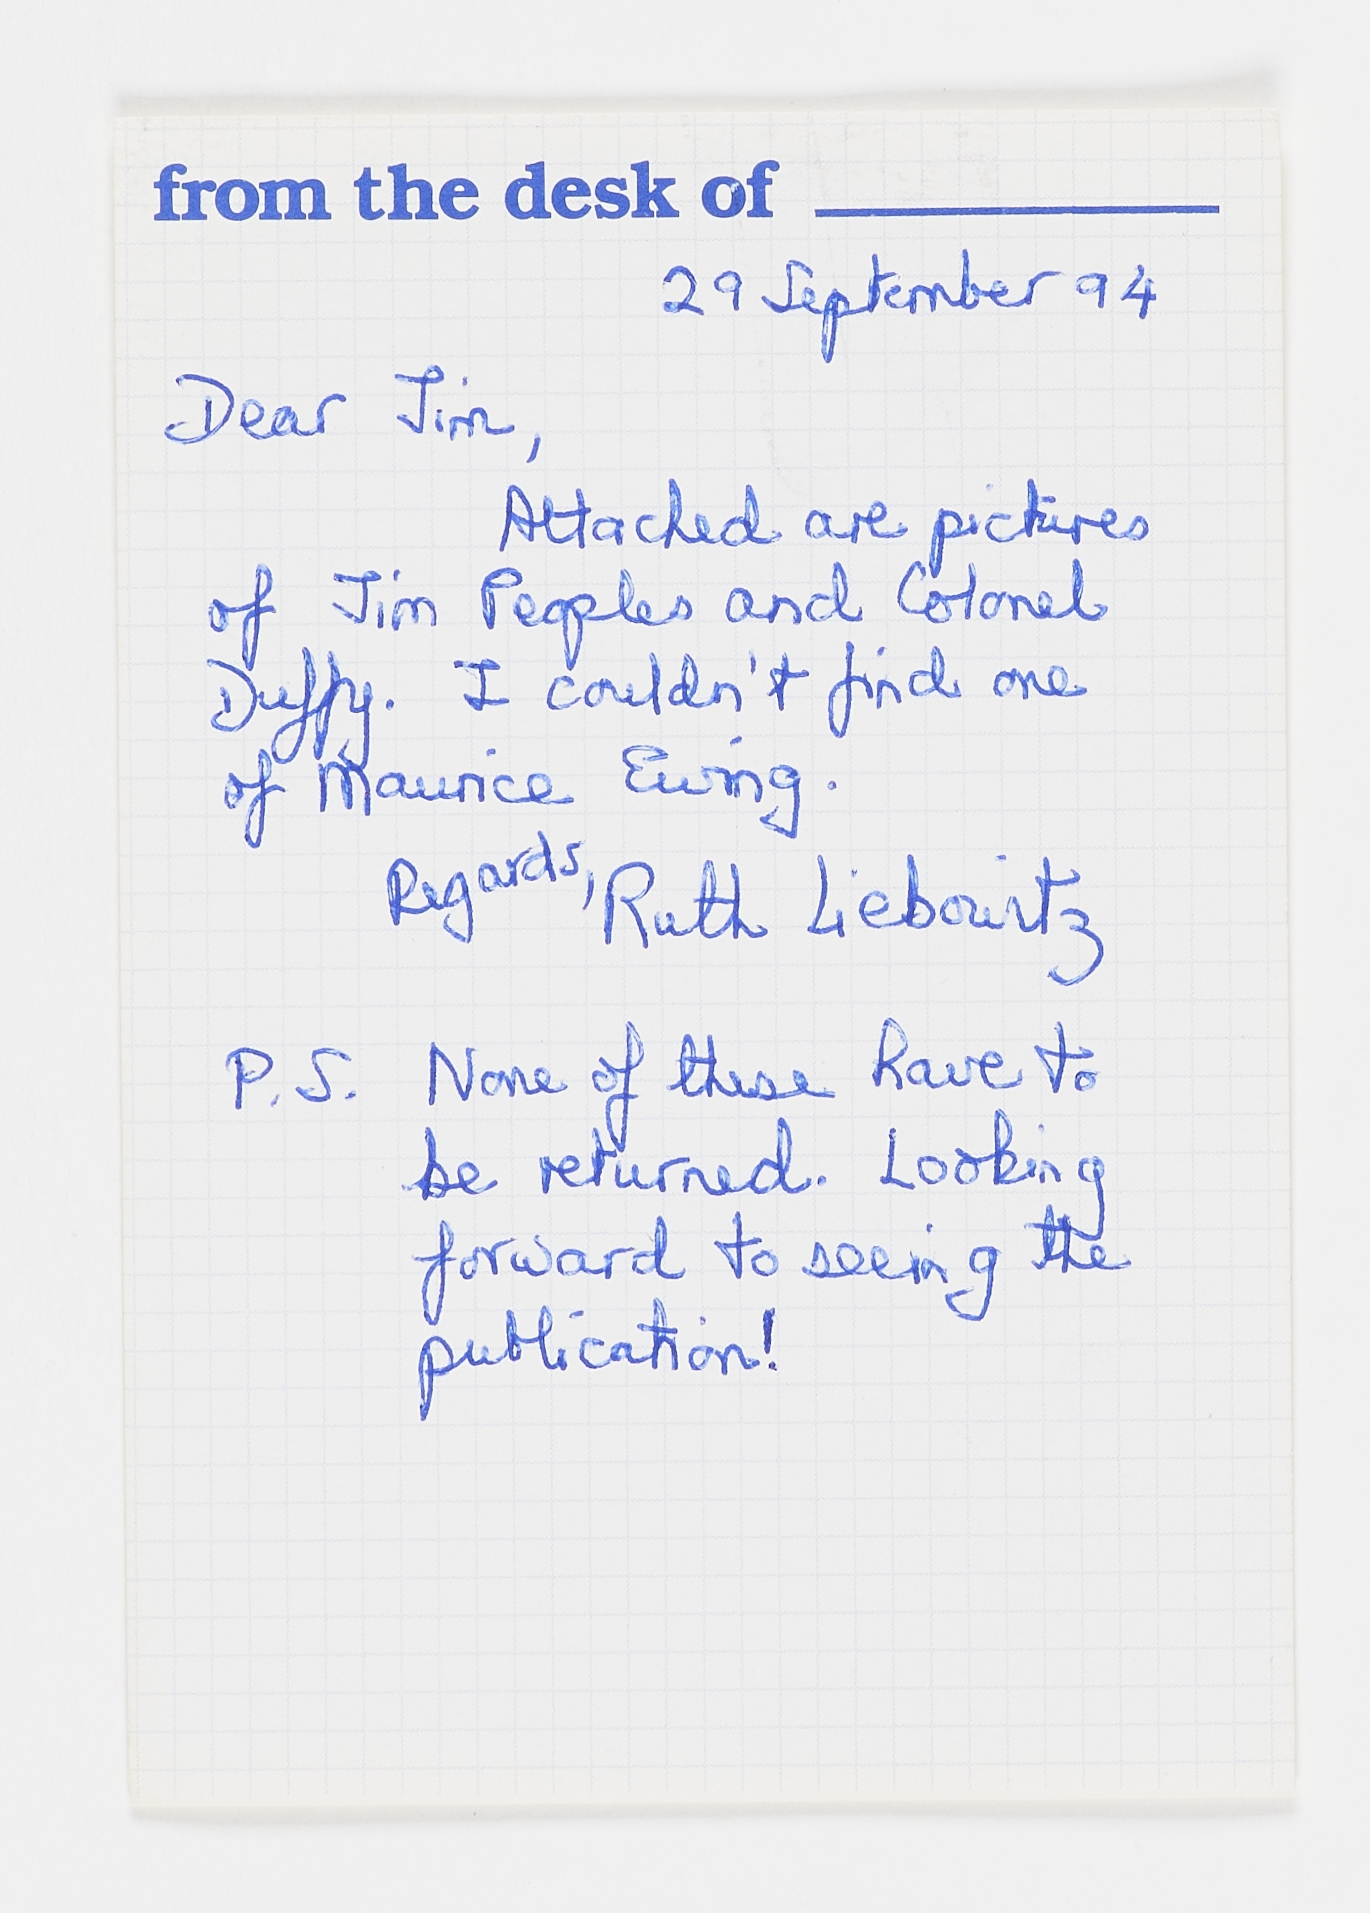 from the desk of
29 September 94
Dear Jim,
Attached are pictures
of Jim Peoples and Colonel
Duffy. I couldn't find one
of Maurice Ewing.
Regards, Ruth Liebowitz
P.S. None of these have to
be returned. Looking
forward to seeing the
publication!